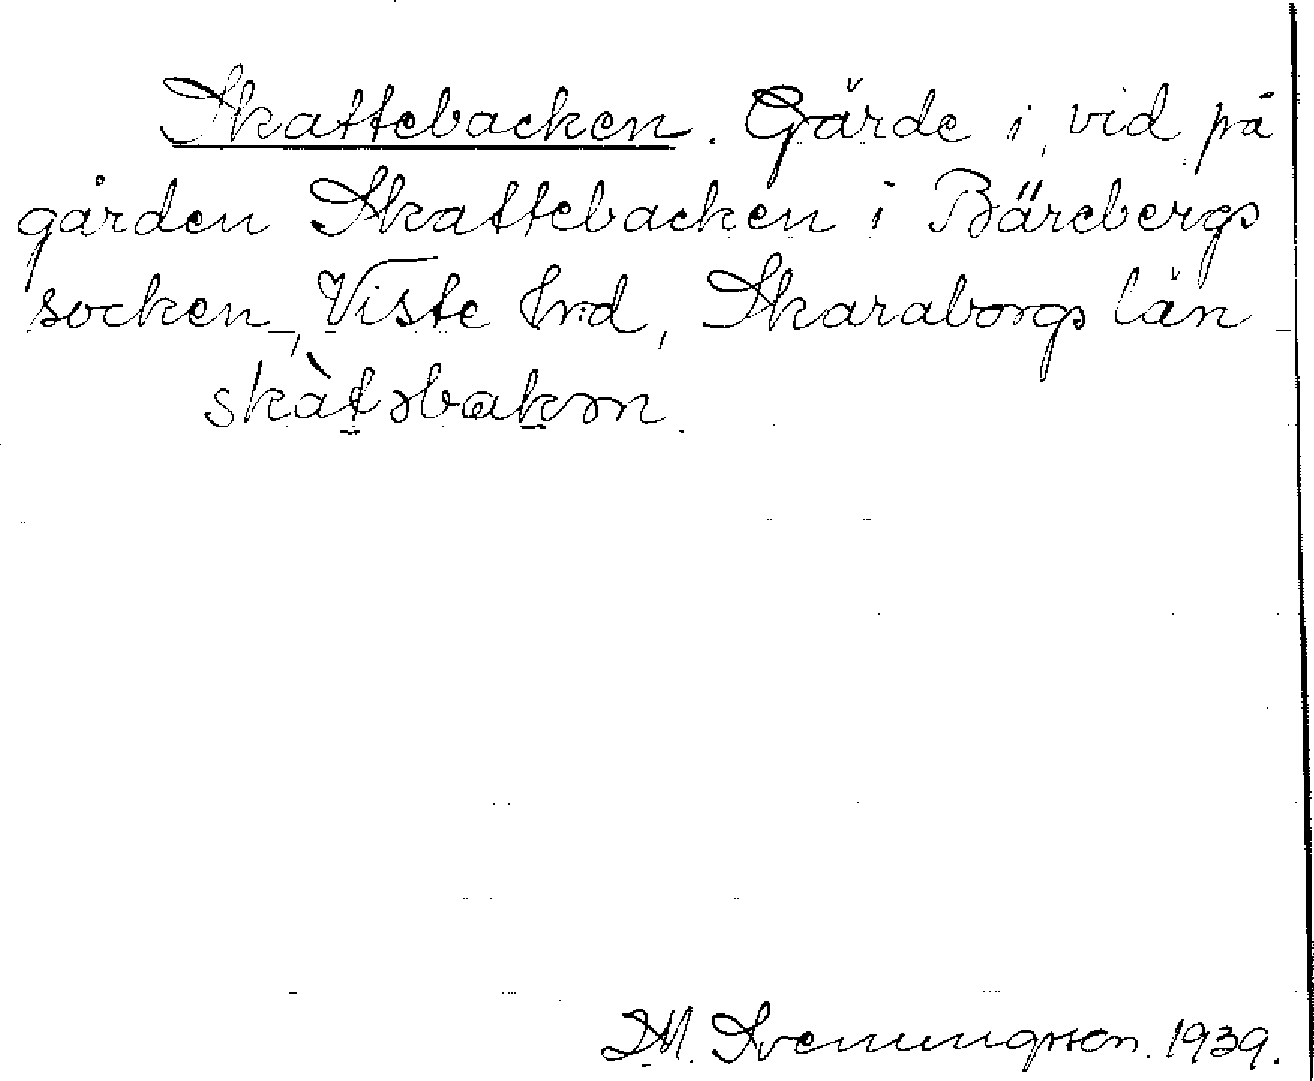 Skattebacken. Gärde i, vid på
gården Skattebacken i Bärebergs
socken, Viste hrd, Skaraborgs län
skàtəbakən
M. Svenungsson. 1939.